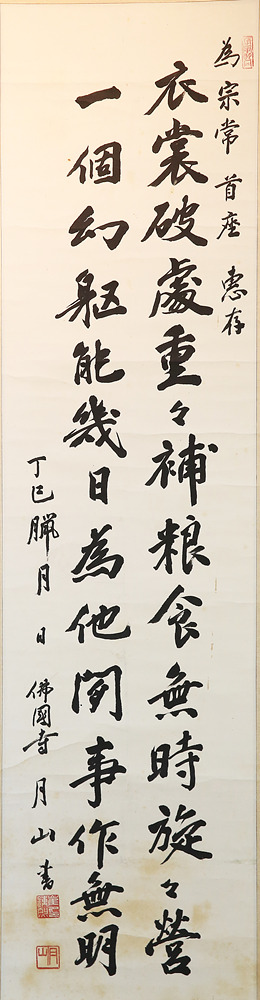 為宗常 首座 惠存
衣裳破處重々補粮食無時旋々營
一個幻軀能幾日為他閑事作無明
丁巳臘月 日 佛國寺 月山書
月山